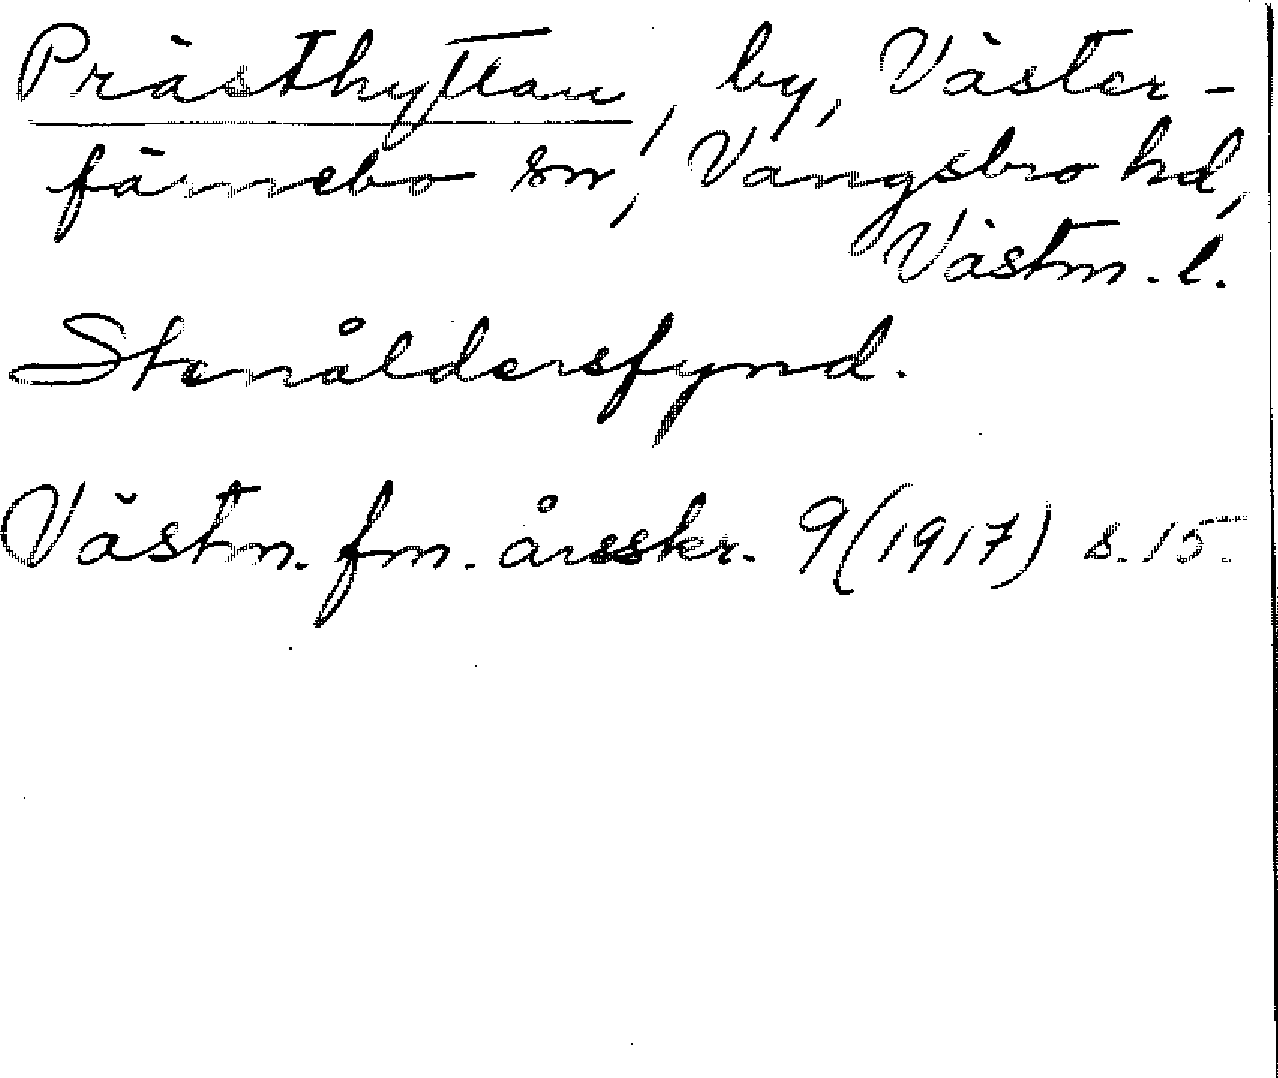 Prästhyttan, by, Väster-
färnebo sn, Vangsbro hd,
Västm. l.
Stenåldersfynd.
Västm. fm. årsskr. 9 (1917) s. 15.